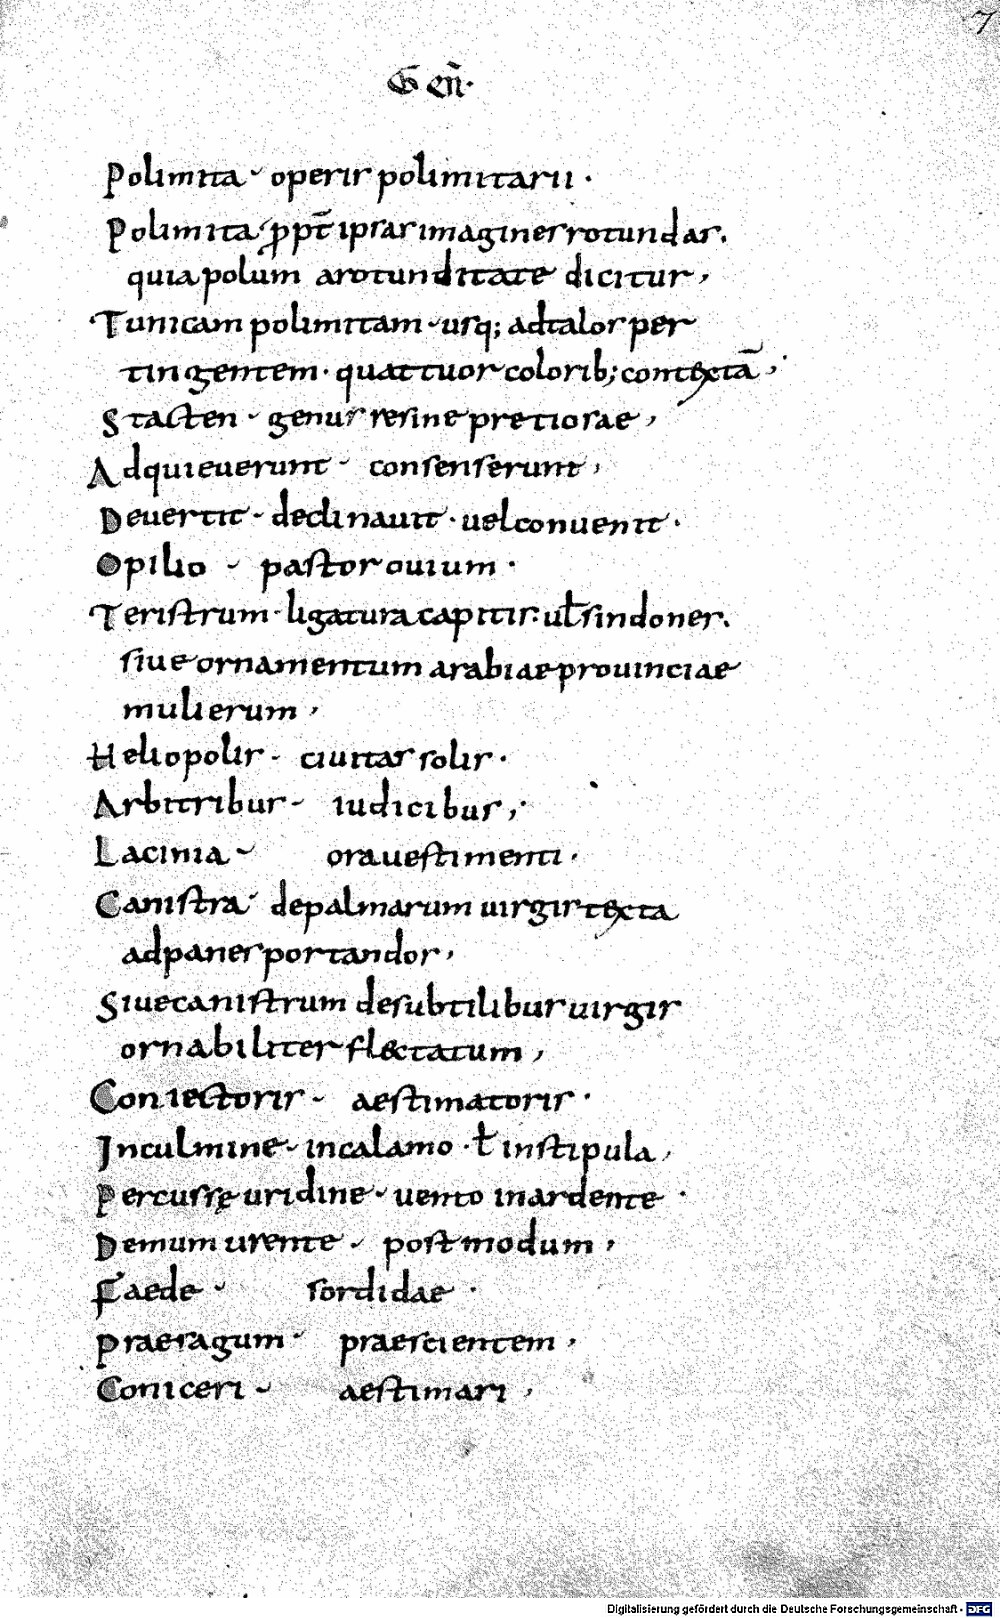 7
Geñ.
Polimita - operis polimitarii .
Polimita . ꝓpt̄ ipsas imagines rotundas.
quia polum a rotunditate dicitur,
Tunicam polimitam - usq; ad talos per
tingentem . quattuor colorib; contextā,
Stacten - genus resine pretiosae,
Adquieuerunt - consenserunt,
Deuertit - declinauit . uel conuenit .
Opilio - pastor ouium .
Teristrum . ligatura capitis : uł sindones.
siue ornamentum arabiae prouinciae
mulierum,
Heliopolis - ciuitas solis .
Arbitribus - iudicibus,
Lacinia - ora uestimenti .
Canistra - de palmarum uirgis texta
ad panes portandos,
Siue canistrum de subtilibus uirgis
ornabiliter fl&tatum,
Coniectoris - aestimatoris .
In culmine - in calamo . ł in stipula,
Percussę uridine - uento in ardente .
Demum urente - postmodum,
Faede - sordidae .
Praesagum - praescientem,
Coniceri - aestimari,
Digitalisierung gefördert durch die Deutsche Forschungsgemeinschaft - DFG